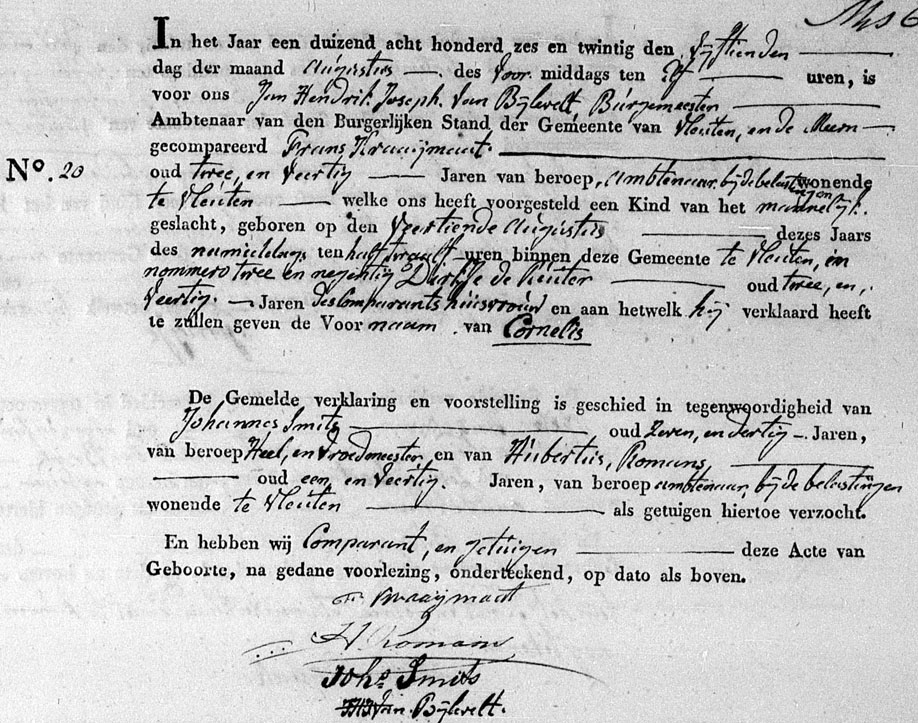 In het Jaar een duizend acht honderd zes en twintig den Vijftienden
dag der maand Augustus des Voor middags ten Elf uren, is
voor ons Jan Hendrik Joseph van Bijlevelt, Burgemeester
Ambtenaar van den Burgerlijken Stand der Gemeente van Vleuten, en de Meern
gecompareerd Frans Kraaijmaat.
N°. 20
oud twee, en Veertig Jaren van beroep, ambtenaar, bij de belastingen wonende
te Vleuten welke ons heeft voorgesteld een Kind van het mannelijk.
geslacht, geboren op den Veertiende Augustus dezes Jaars
des namiddags ten half twaalf uren binnen deze Gemeente te Vleuten, in
nommero twee en negentig Dirkje de Ruiter oud twee, en,
Veertig. Jaren des Comparants huisvrouw en aan hetwelk hij verklaard heeft
te zullen geven de Voor naam van Cornelis
De Gemelde verklaring en voorstelling is geschied in tegenwoordigheid van
Johannes Smits oud Zeven, en dertig Jaren,
van beroep Heel, en Vroedmeester, en van Hubertus, Romans,
oud een, en Veertig. Jaren, van beroep ambtenaar, bij de belastingen
wonende te Vleuten als getuigen hiertoe verzocht.
En hebben wij Comparant, en getuigen deze Acte van
Geboorte, na gedane voorlezing, onderteekend, op dato als boven.
Kraaijmaat
H. Romans
Johs Smits
van Bijlevelt.